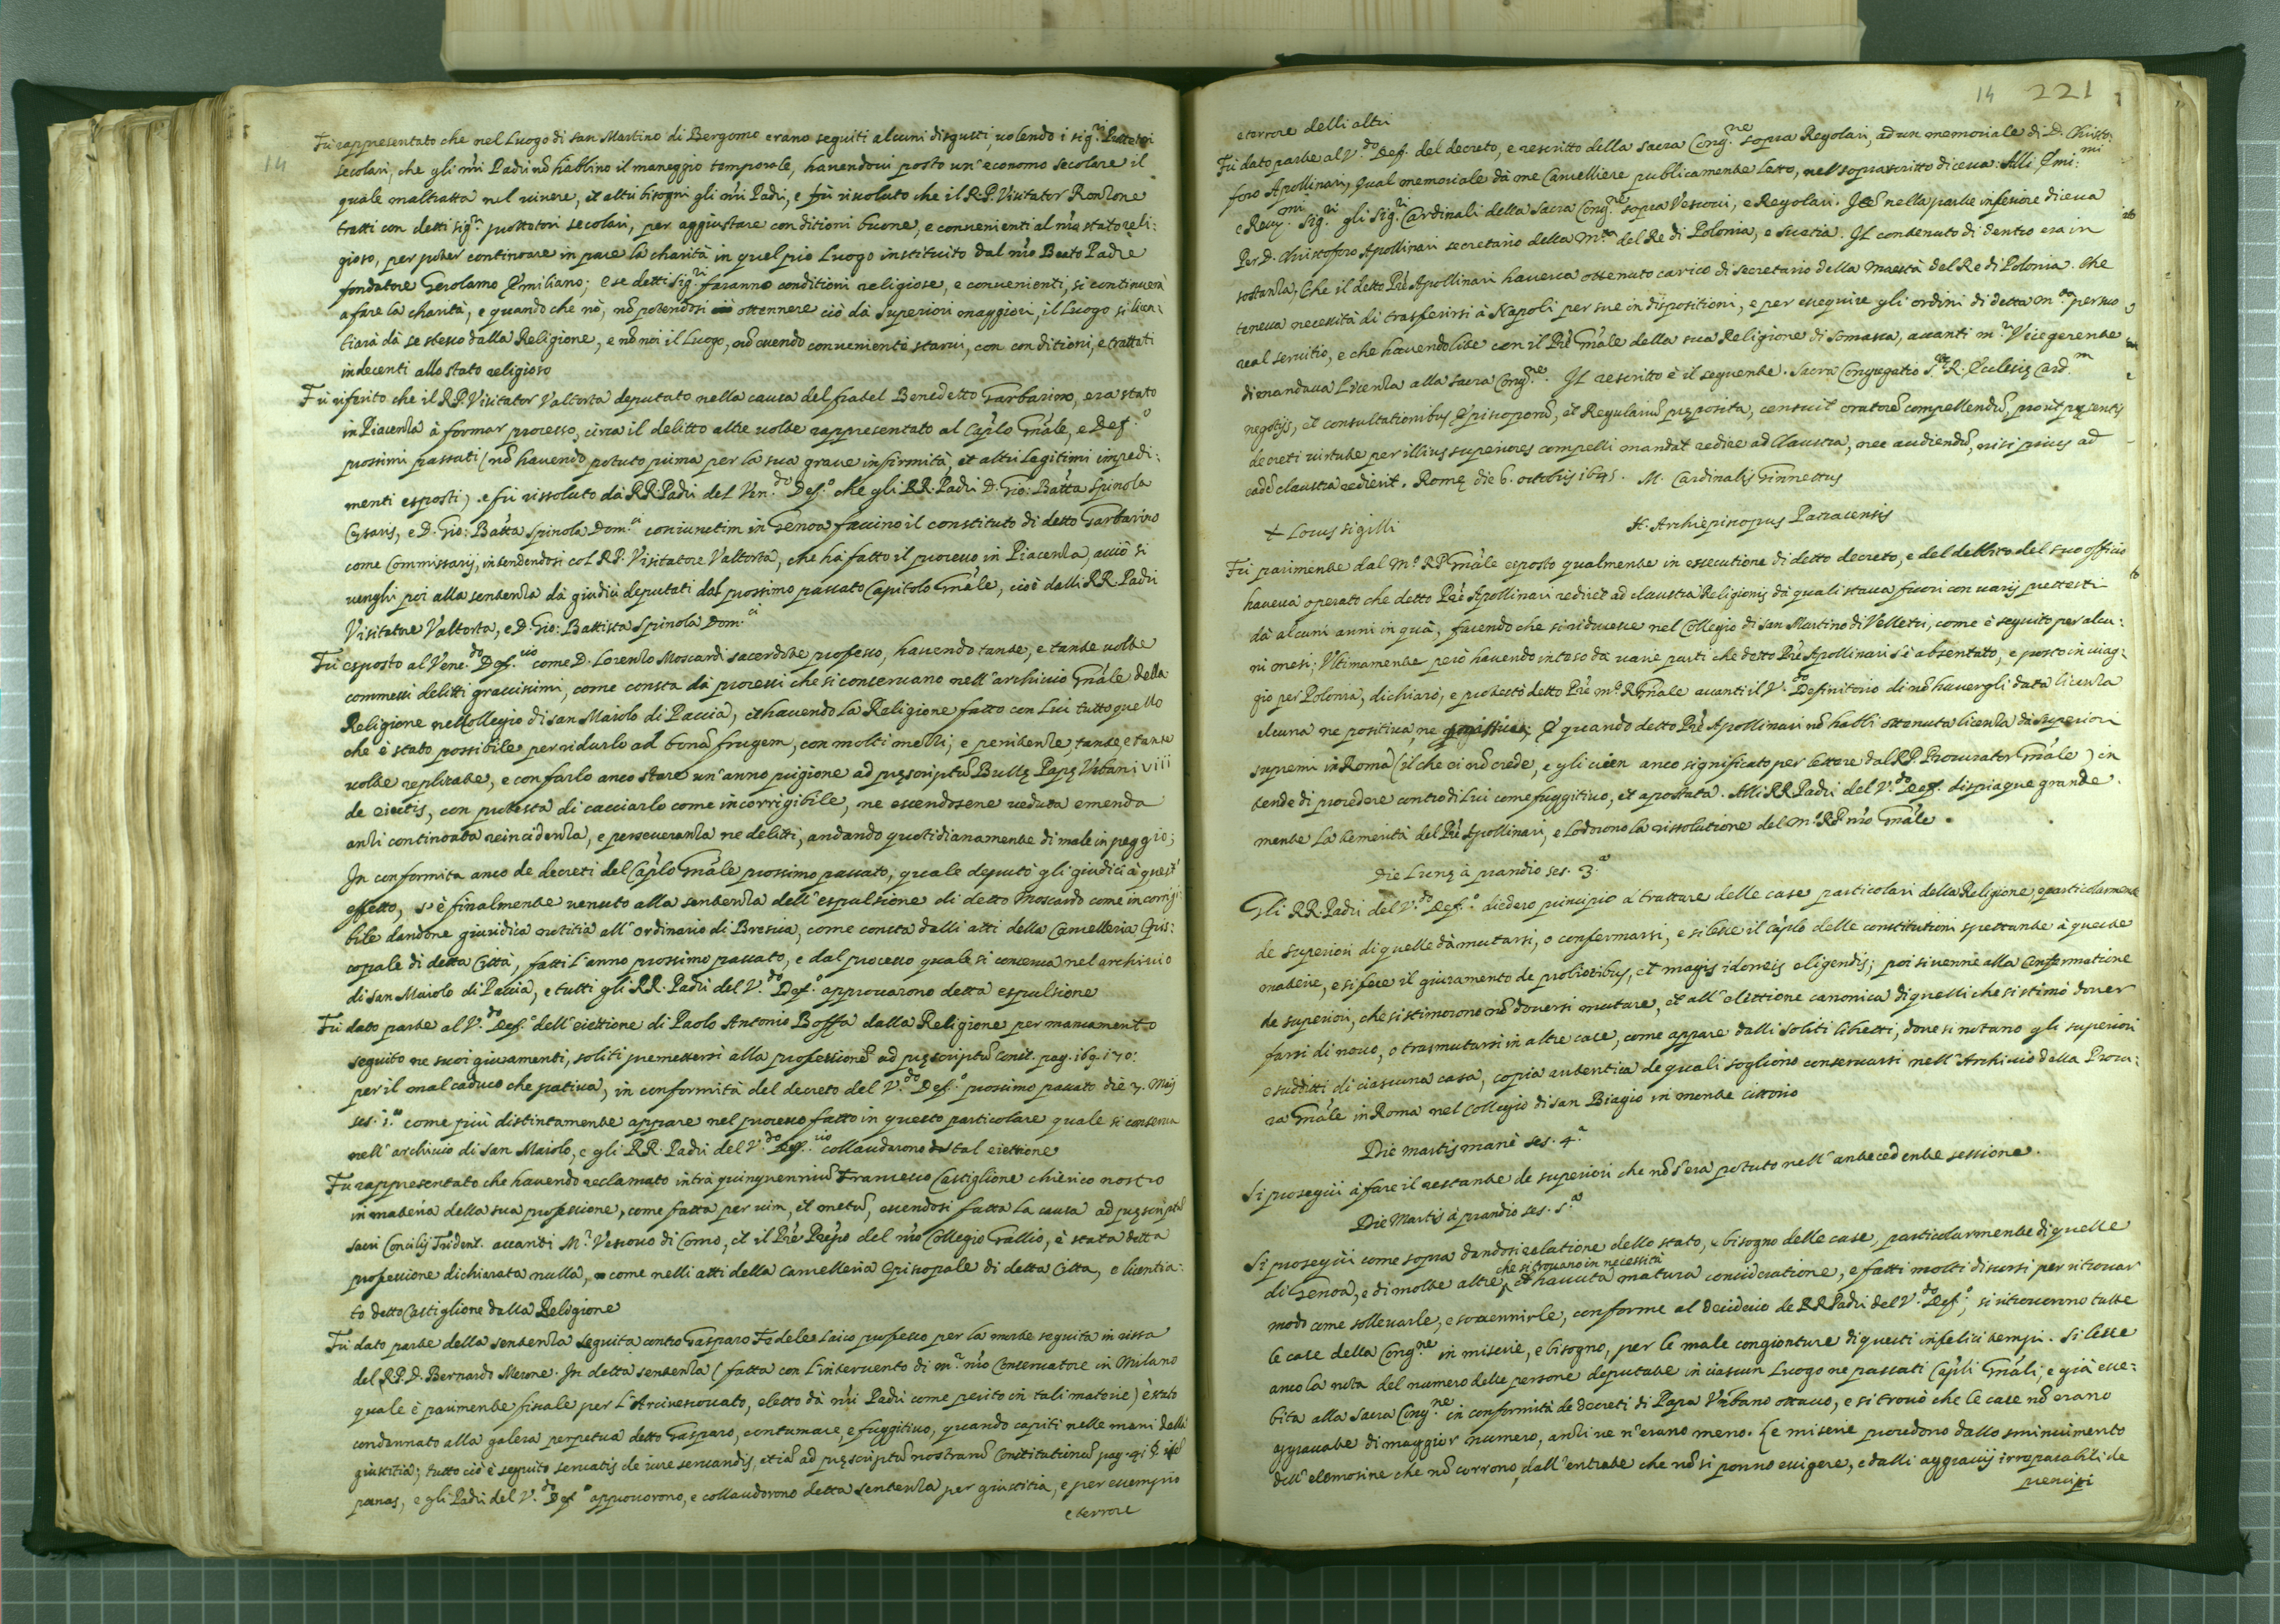 14
Fù rappresentato che nel Luogo di san Martino di Bergomo erano seguiti alcuni disgusti, volendo i sig.ri Protetori
secolari, che gli nr̃i Padri nõ habbino il maneggio temporale, havendovi posto un'economo secolare il
quale maltratta nel vivere, et altri bisogni gli nr̃i Padri, e fù risoluto che il R.P. Visitator Ronzone
tratti con detti sig.ri protettori secolari, per aggiustare conditioni buone, e convenienti al nr̃o stato reli:
gioso, per poter continoare in pace la charità in quel pio Luogo instituito dal nr̃o Beato Padre
fondatore Gerolamo Emiliano; e se detti Sig.ri faranno conditioni religiose, e convenienti, si continuerà
a fare la charità, e quando che nò, nõ potendosi ottennere ciò dà superiori maggiori, il Luogo si licen:
tiarà dà se stesso dalla Religione, e nõ noi il Luogo, nõ essendo conveniente starvi, con conditioni, e trattati
indecenti allo stato religioso
Fù riferito che il R.P. Visitator Valtorta deputato nella causa del fratel Benedetto Garbarino, era stato
in Piacenza à formar processo, circa il delitto altre volte rappresentato al Cap̃lo Gñale, e Def.o
prossimi passati (nõ havendo potuto prima per la sua grave infirmità, et altri lagitimi impedi:
menti esposti) e fù rissoluto dà RR. Padri del Ven.do Def.o che gli RR. Padri D. Gio: Bat̃ta Spinola
Cesaris, e D. Gio: Bat̃ta Spinola Dom.ci coniunctim in Genoa faccino il constituto di detto Garbarino
come Commissarij, intendendosi col R.P. Visitatore Valtorta, che hà fatto il processo in Piacenza, acciò si
venghi poi alla sentenza dà giudici deputati dal prossimo passato Capitolo Gñale, cioè dalli RR. Padri
Visitatore Valtorta, e D. Gio: Battista Spinola Dom.ci
Fù esposto al Vene.do Def.rio come D. Lorenzo Moscardi sacerdote professo, havendo tante, e tante volte
commessi delitti gravissimi, come consta dà processi che si conservano nell'archivio Gñale della
Religione nel Collegio di san Maiolo di Pavia, et havendo la Religione fatto con Lui tutto quello
che è stato possibile per ridurlo ad bonã frugem, con molti mezzi, e penitenze, tante e tante
volte replicate, e con farlo anco stare un'anno prigione ad pręscriptũ Bullę Papę Urbani VIII
de eiectis, con protesta di cacciarlo come incorrigibile, ne essendosene veduta emenda
anzi continoata reincidenza, e perseveranza ne delitti, andando quotidianamente di male in peggio;
In conformita anco de decreti del Cap̃lo Gñale prossimo passato, quale deputò gli giudici à quest'
effetto, s'è finalmente venuto alla sentenza dell'espulsione di detto Moscardo come incorrigi:
bile dandone giuridica notitia all'ordinario di Brescia, come consta dalli atti della Cancelleria Epis:
copale di detta Città, fatti l'anno prossimo passato, e dal processo quale si conserva nel archivio
di san Maiolo di Pavia, e tutti gli RR. Padri del V.do Def.o approvarono detta espulsione
Fù dato parte al V.do Def.o dell'eiettione di Paolo Antonio Boffa dalla Religione per mancamento
seguito ne suoi giuramenti, soliti premettersi alla professione ad pręscriptũ const. pag. 169. 170:
per il mal caduco che pativa, in conformità del decreto del V.do Def.o prossimo passato die 7. Maij
ses. i.a come più distintamente appare nel processo fatto in questo particolare quale si conserva
nell'archivio di san Maiolo, e gli RR. Padri del V.do Def.rio collaudarono tal eiettione
Fù rappresentato che havendo reclamato intrà quinquenniũ Francesco Castiglione chierico nostro
in materia della sua professione, come fatta per vim, et metũ, essendosi fatta la causa ad pręscriptũ
sacri Concilij Trident. avanti M.r Vescovo di Como, et il Prẽ Prep̃o del nr̃o Collegio Gallio, è stata detta
professione dichiarata nulla, come nelli atti della Cancelleria Episcopale di detta Citta, e licentia:
to detto Castiglione dalla Religione
Fù dato parte della sentenza seguita contro Gasparo Fedele Laico professo per la morte seguita in rissa
del R.P. D. Bernardo Merone. In detta sentenza (fatta con l'intervento di m.r nr̃o Conservatore in Milano
quale è parimente fiscale per l'Arcivescovato, eletto dà nr̃i Padri come perito in tali materie) è stato
condannato alla galera perpetua detto Gasparo, contumace, e fuggitivo, quando capiti nelle mani della
giustitia; tutto ciò è seguito servatis de iure servandis, etiã ad pręscriptũ nostrarũ Constitutionũ pag. 91
pœnas, e gli Padri del V.do Def.o approvorono, e collaudorono detta sentenza per giustitia, e per essempio
e terrore
14 221
e terrore delli altri
Fù dato parte al V.do Def. del decreto, e rescritto della sacra Cong.ne sopra Regolari, ad un memoriale di D. Christo:
foro Apollinari, qual memoriale dà me Cancelliere publicamente letto, nel soprascritto diceva: Alli Emi:mi
e Rev.mi Sig.ri gli Sig.ri Cardinali della Sacra Cong.ne sopra Vescovi, e Regolari. Itẽ nella parte inferiore diceva
Per D. Christoforo Apollinari secretario della M.tà del Re di Polonia, e Suetia. Il contenuto di dentro era in
sostanza, Che il detto Prẽ Apollinari haveva ottenuto carico di secretario della Maestà del Re di Polonia. Che
teneva necessità di trasferirsi à Napoli per sue indispositioni, e per esseguire gli ordini di detta M.tà per suo
real servitio, e che havendo lite con il Prẽ Gñale della sua Religione di Somasca, avanti m.r Vicegerente
dimandava Licenza alla sacra Cong.ne. Il rescritto è il seguente. Sacra Congregatio S.tæ R. Ecclesię Card.m
negotijs, et consultationibus Episcoporũ, et Regulariũ pręposita, censuit oratorẽ compellendũ, prout pręsentis
decreti virtute per illius superiores compelli mandat redire ad Claustra, nec audiendũ, nisi prius ad
eadẽ claustra redierit. Romę die 6. octobris 1645. M. Cardinalis Ginnettus
+ Locus sigilli A. Archiepiscopus Patracensis
Fù parimente dal M.o R.P. Gñale esposto qualmente in essecutione di detto decreto, e del debito del suo officio
haveva operato che detto Prẽ Apollinari rediret ad claustra Religionis dà quali stava fuori con varij pretesti
dà alcuni anni in quà, facendo che si riducesse nel Collegio di san Martino di Velletri, come è seguito per alcu:
ni mesi; Ultimamente però havendo inteso da varie parti che detto Prẽ Apollinari s'è absentato, e posto in viag:
gio per Polonia, dichiarò, e protestò detto Prẽ m.o R. Gñale avanti il V.do Definitorio di nõ havergli data licenza
alcuna ne positiva, ne E quando detto Prẽ Apollinari nõ habbi ottenuta licenza dà superiori
supremi in Roma (il che ei nõ crede, e gli vien anco significato per lettere dal R.P. Procurator Gñale) in
tende di procedere contro di Lui come fuggitivo, et apostata. Alli RR. Padri del V.do Def. dispiaque grande
mente la temerità del Prẽ Apollinari, e lodorono la rissolutione del M.o R.P. nr̃o Gñale.
Die Lunę à prandio ses. 3.a
Gli RR. Padri del V.do Def.o diedero principio à trattare delle case particolari della Religione, e particolarmente
de superiori di quelle dà mutarsi, o confermarsi, e si lesse il Cap̃lo delle constitutioni spettante à queste
materie, e si fece il giuramento de probioribus, et magis idoneis eligendis; poi si venne alla Confermatione
de superiori, che si stimorono nõ doversi mutare, et all'elettione canonica di quelli che si stimò dover
farsi di novo, o trasmutarsi in altre case, come appare dalli soliti libretti, dove si notano gli superiori
e sudditi di ciascuna casa, copia autentica de quali sogliono conservarsi nell'Archivio della Procu:
ra Gñale in Roma nel Collegio di san Biagio in monte cittorio
Die Martis manè ses. 4.a
Si proseguì à fare il restante de superiori che nõ s'era potuto nell'antecedente sessione.
Die Martis à prandio ses. 5.a
Si proseguì come sopra dandosi relatione dello stato, e bisogno delle case, particolarmente di quelle
che si trovano in necessità
di Genoa, e di molte altre, et havuta matura consideratione, e fatti molti discorsi per ritrovar
modo come sollevarle, e sovvennirle, conforme al desiderio de RR Padri del V.do Def.o, si ritrovorno tutte
le case della Cong.ne in miserie, e bisogno, per le male congionture di questi infelici tempi. Si lesse
anco la nota del numero delle persone deputate in ciascun Luogo ne passati Cap̃li Gñali, e già essi:
bita alla Sacra Cong.ne in conformità de decreti di Papa Urbano ottavo, e si trovò che le case nõ erano
aggravate di maggior numero, anzi ve n'erano meno. Le miserie procedono dallo sminuimento
dell'elemosine che nõ corrono, dall'entrate che nõ si ponno essigere, e dalli aggravij irreparabili de
prencipi